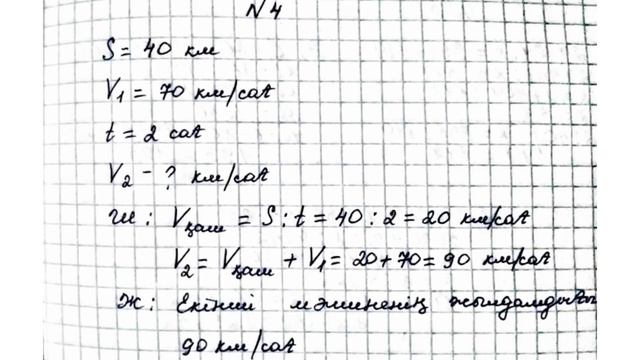 N 4
S = 40 км
V₁ = 70 км/сағ
t = 2 сағ
V₂ - ? км/сағ
Ш: Vқаш = S : t = 40 : 2 = 20 км/сағ
V₂ = Vқаш + V₁ = 20 + 70 = 90 км/сағ
Ж: Екінші машиненің жылдамдығы
90 км/сағ